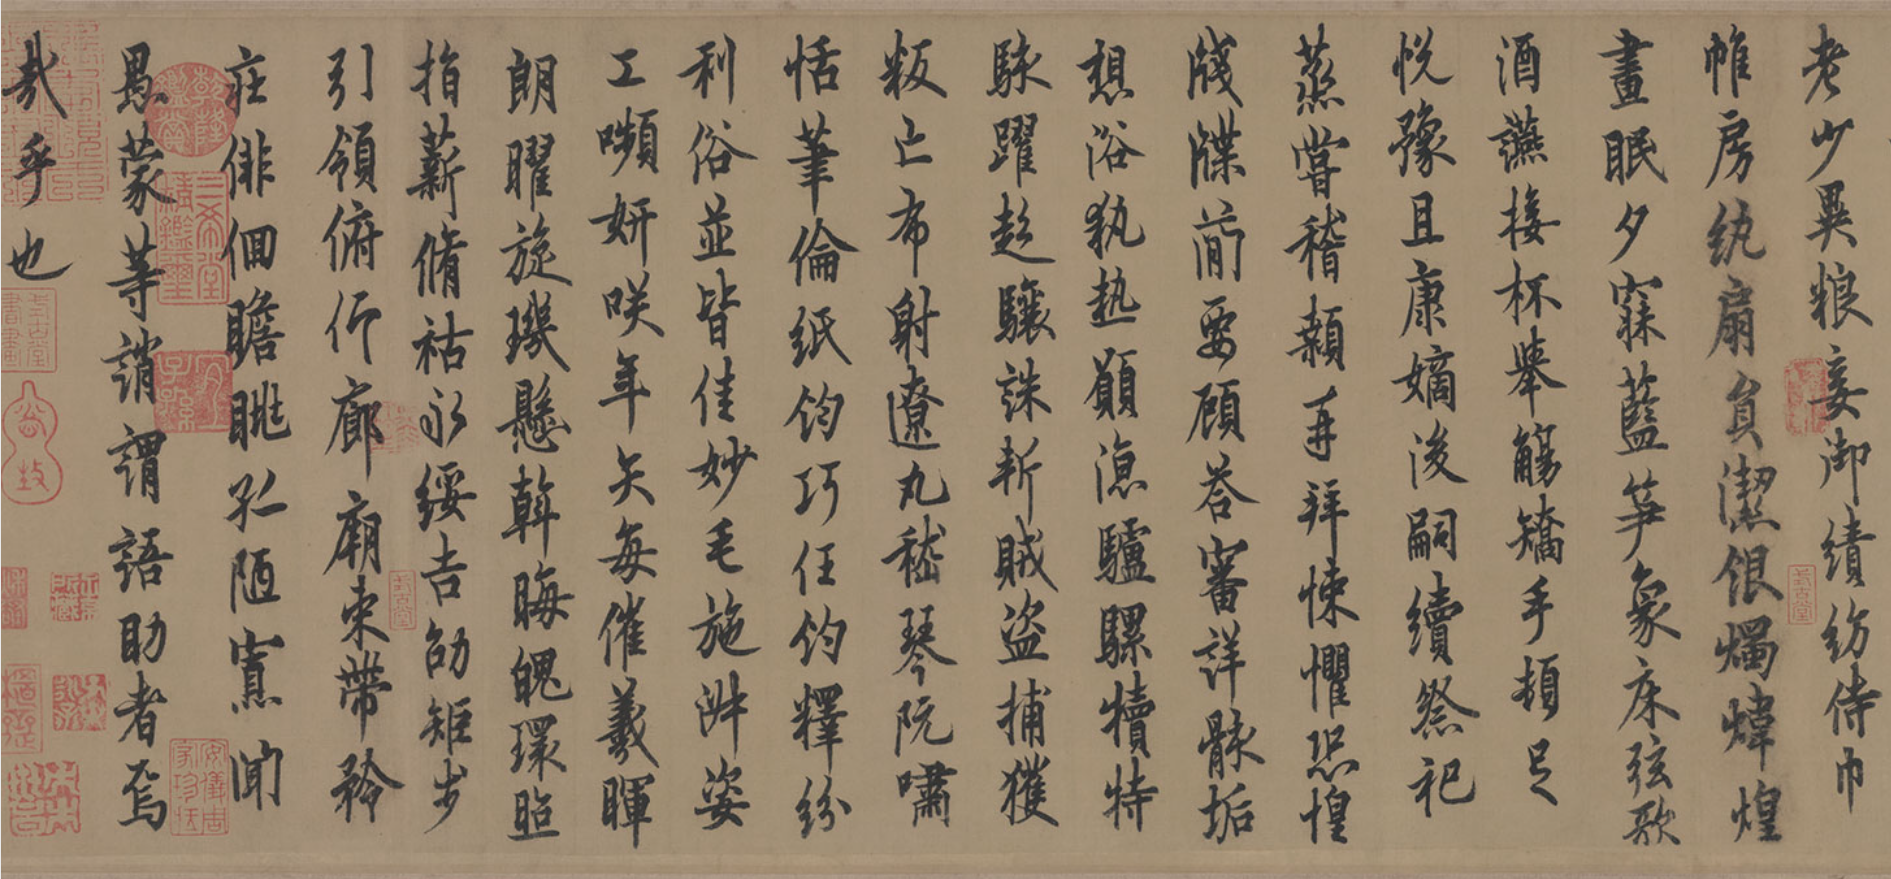 老少異粮妾御績紡侍巾
帷房紈扇員潔銀燭煒煌
晝眠夕寐藍笋象床弦歌
酒讌接杯舉觴矯手頓足
悅豫且康嫡後嗣續祭祀
蒸嘗稽顙再拜悚懼恐惶
牋牒簡要顧荅審詳骸垢
想浴執熱願涼驢騾犢特
駭躍超驤誅斬賊盜捕獲
叛亡布射遼丸嵇琴阮嘯
恬筆倫紙鈞巧任鈞釋紛
利俗並皆佳妙毛施淑姿
工嚬妍咲年矢每催羲暉
朗曜旋璣懸斡晦魄環照
指薪脩祜永綏吉劭矩步
引領俯仰廊廟束帶矜
莊俳佪瞻眺孤陋寡聞
愚蒙等誚謂語助者焉
哉乎也
乾隆鑑賞
三希堂精鑑璽
宜子孫
安儀周家珍藏
式古堂書畫
式古堂